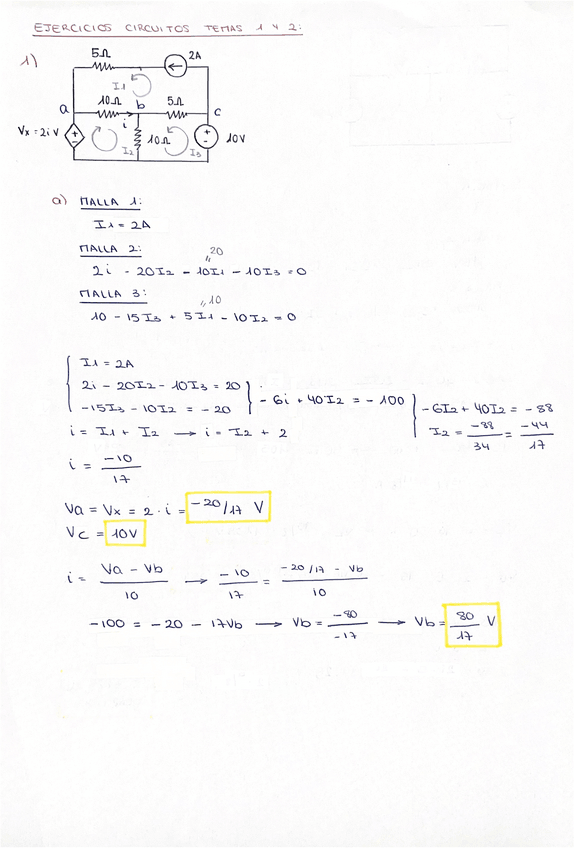 EJERCICIOS CIRCUITOS TEMAS 1 Y 2:
1)
5Ω
2A
I1
10Ω
b
5Ω
a
c
i
Vx = 2i V
10Ω
10V
I2
I3
a) MALLA 1:
I1 = 2A
MALLA 2:
20
2i - 20I2 - 10I1 - 10I3 = 0
MALLA 3:
10
10 - 15I3 + 5I1 - 10I2 = 0
I1 = 2A
2i - 20I2 - 10I3 = 20
-6i + 40I2 = -100
-6I2 + 40I2 = -88
-15I3 - 10I2 = -20
i = I1 + I2 → i = I2 + 2
I2 = -88/34 = -44/17
i = -10/17
Va = Vx = 2 · i = -20/17 V
Vc = 10V
i = Va - Vb/10 → -10/17 = -20/17 - Vb/10
-100 = -20 - 17Vb → Vb = -80/-17 → Vb = 80/17 V